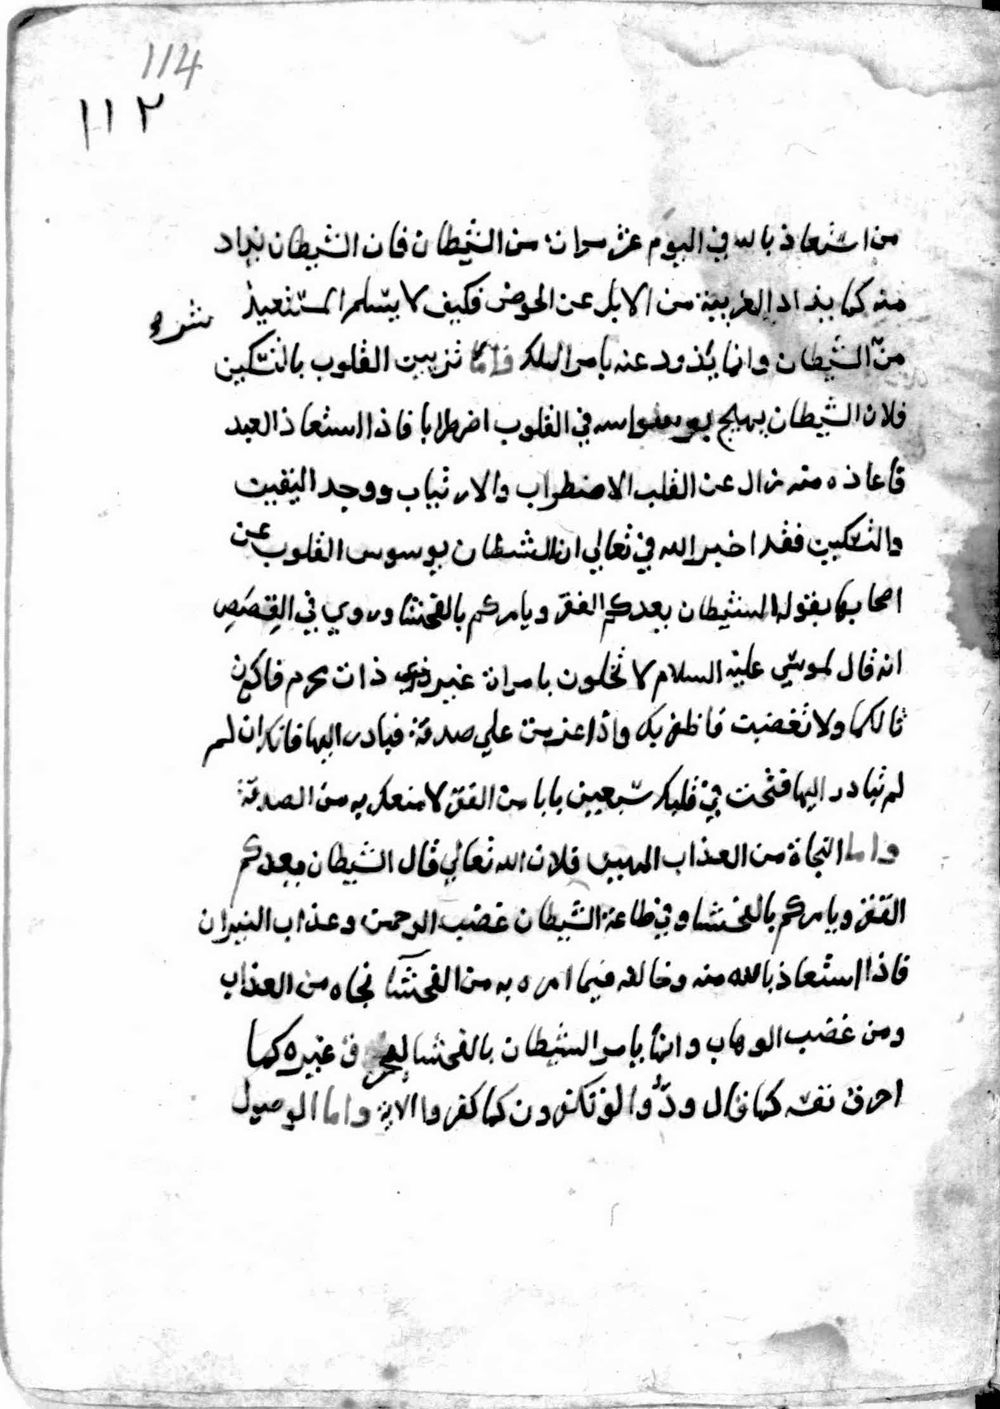 114
١١٢
من استعاذ بالله في اليوم عشر مرات من الشيطان فان الشيطان يذاد
منه كما يذاد الغريبة من الابل عن الحوض فكيف لا يسلم المستعيذ
شره
من الشيطان وانما يذود عنه بامر الملك فاما تزيين القلوب بالتسكين
فلان الشيطان يهيج بوسواسه في القلوب اضطرابا فاذا استعاذ العبد
فاعاذه منه زال عن القلب الاضطراب والارتياب ووجد اليقين
والتسكين فقد اخبر الله في تعالي ان الشيطان يوسوس القلوب عن
اصحابها بقوله الشيطان يعدكم الفقر ويامركم بالفحشا وروي في القصص
انه قال لموسي عليه السلام لا تخلون بامراة غير ذات محرم فاكون
ثالثكما ولا تغضبت فاظفر بك واذا عزمت علي صدقة فبادر اليها فانك ان لم
لم تبادر اليها فتحت في قلبك سبعين بابا من الفقر لامنعك به من الصدقة
واما النجاة من العذاب المهين فلان الله تعالي قال الشيطان يعدكم
الفقر ويامركم بالفحشا وفي طاعة الشيطان غضب الرحمن وعذاب النيران
فاذا استعاذ بالله منه وخالفه فيما امره به من الفحشآ نجاه من العذاب
ومن غضب الوهاب وانما يامر الشيطان بالفحشا ليحرق غيره كما
احرق نفسه كما قال ودّوا لو تكفرون كما كفروا الاية واما الوصول